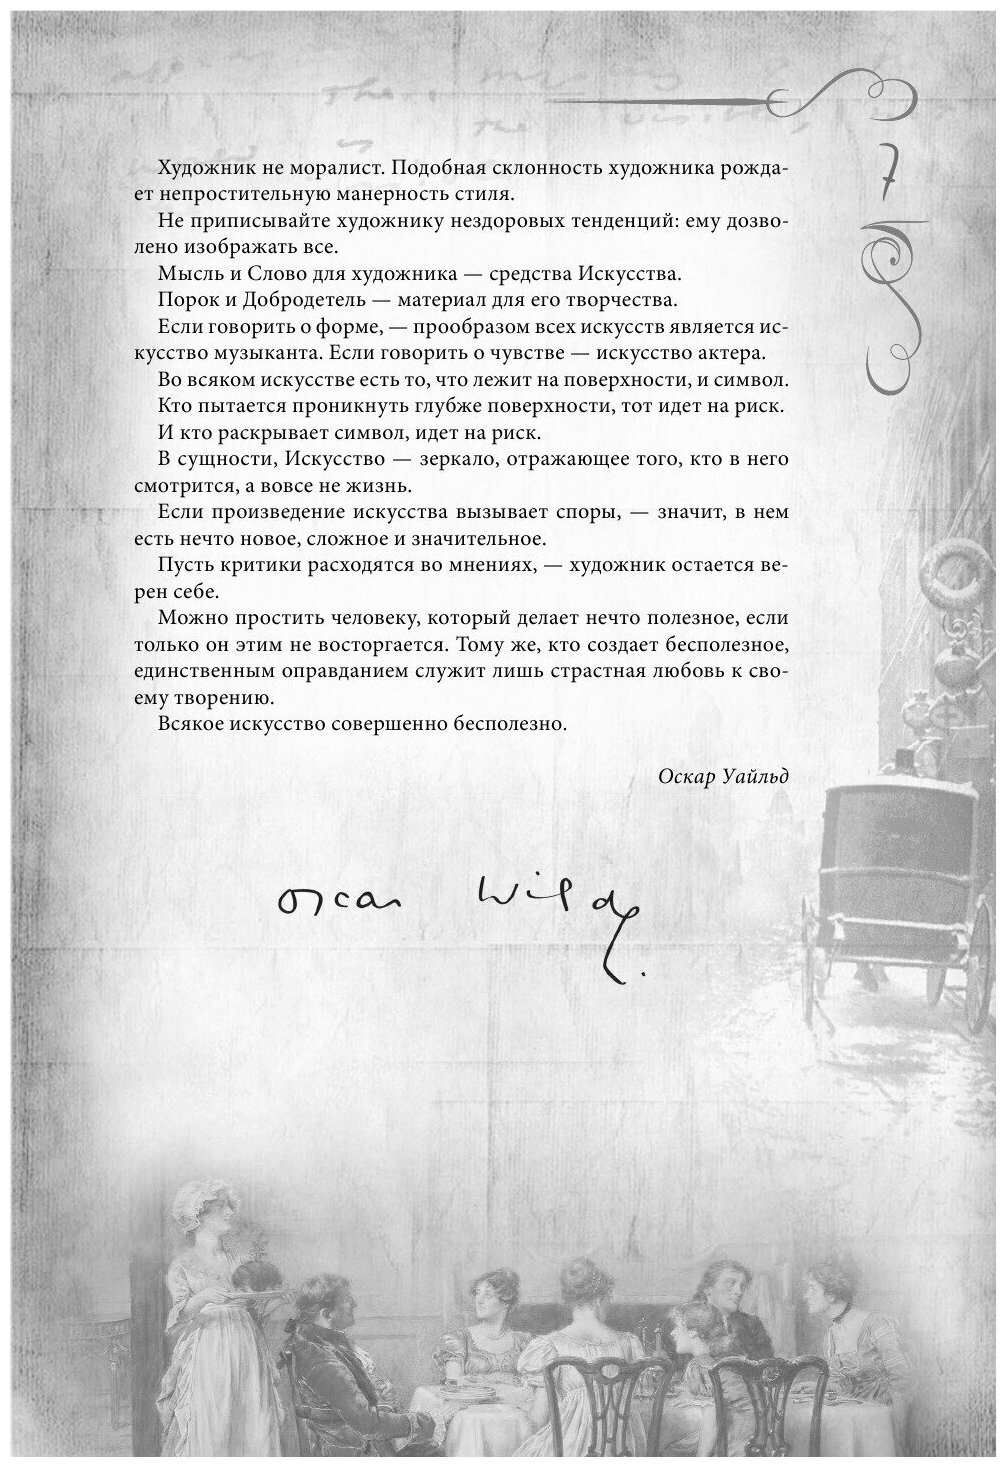 7
Художник не моралист. Подобная склонность художника рожда-
ет непростительную манерность стиля.
Не приписывайте художнику нездоровых тенденций: ему дозво-
лено изображать все.
Мысль и Слово для художника — средства Искусства.
Порок и Добродетель — материал для его творчества.
Если говорить о форме, — прообразом всех искусств является ис-
кусство музыканта. Если говорить о чувстве — искусство актера.
Во всяком искусстве есть то, что лежит на поверхности, и символ.
Кто пытается проникнуть глубже поверхности, тот идет на риск.
И кто раскрывает символ, идет на риск.
В сущности, Искусство — зеркало, отражающее того, кто в него
смотрится, а вовсе не жизнь.
Если произведение искусства вызывает споры, — значит, в нем
есть нечто новое, сложное и значительное.
Пусть критики расходятся во мнениях, — художник остается ве-
рен себе.
Можно простить человеку, который делает нечто полезное, если
только он этим не восторгается. Тому же, кто создает бесполезное,
единственным оправданием служит лишь страстная любовь к сво-
ему творению.
Всякое искусство совершенно бесполезно.
Оскар Уайльд
Oscar Wilde.